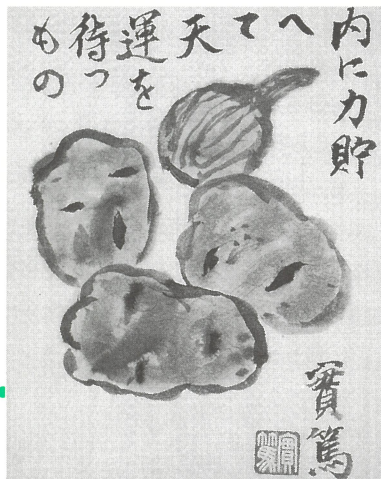 内に力貯
へ
て
天
運を
待つ
もの
實篤
實篤